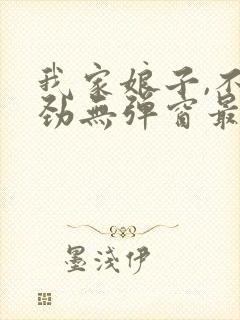 我家娘子,不
劲無彈窗最
墨淺伊